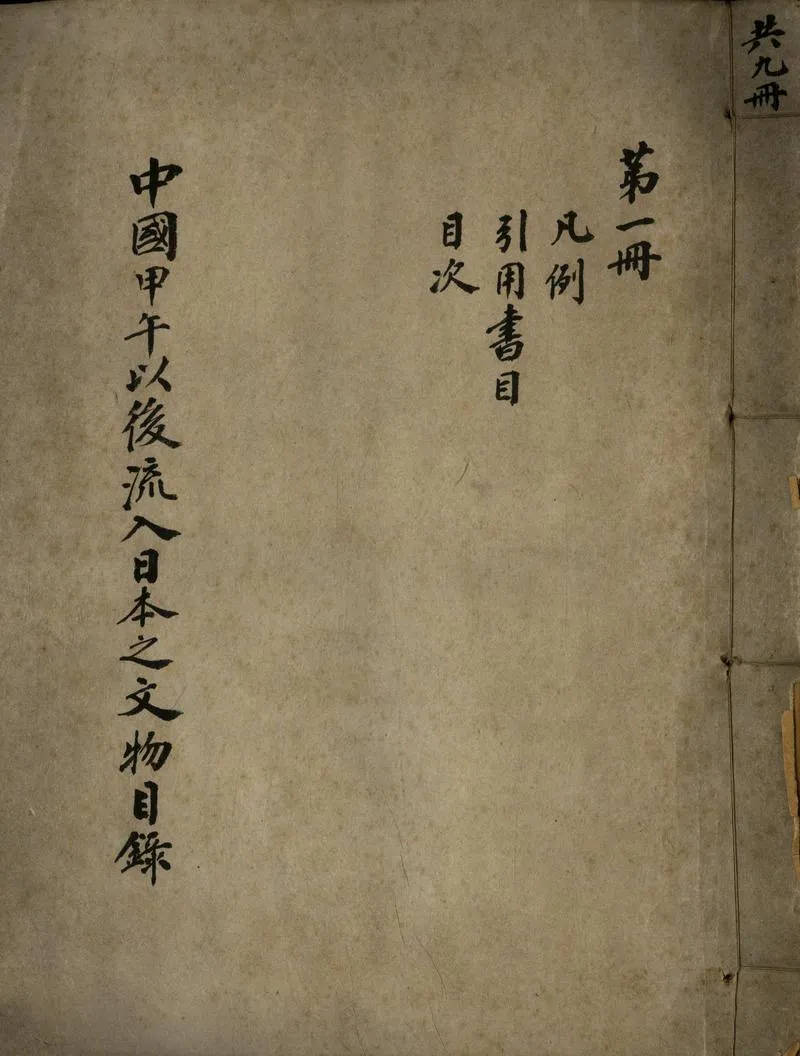 共九冊
第一冊
凡例
引用書目
目次
中國甲午以後流入日本之文物目錄